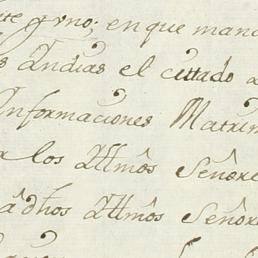 te y uno; en que man
s Yndias el cittado
Informaciones Matrim
los Yllmôs Señore
âdhos Yllmôs Señore